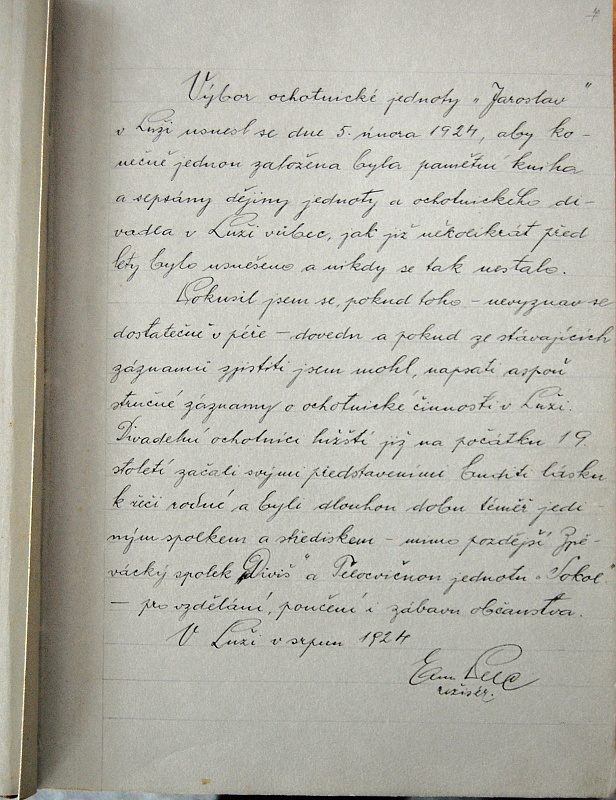 Výbor ochotnické jednoty „Jaroslav"
v Luži usnesl se dne 5. února 1924, aby ko-
nečně jednou založena byla pamětní kniha
a sepsány dějiny jednoty a ochotnického di-
vadla v Luži vůbec, jak již několikrát před
léty bylo usnešeno a nikdy se tak nestalo.
Pokusil jsem se, pokud toho – nevyznav se
dostatečně v péře – dovedu a pokud ze stávajících
záznamů zjistiti jsem mohl, napsati aspoň
stručné záznamy o ochotnické činnosti v Luži.
Divadelní ochotníci lužští již na počátku 19.
století začali svými představeními buditi lásku
k řeči rodné a byli dlouhou dobu téměř jedi-
ným spolkem a střediskem – mimo pozdější Zpě-
vácký spolek „Diviš" a Tělocvičnou jednotu „Sokol"
– pro vzdělání, poučení i zábavu občanstva.
V Luži v srpnu 1924
Em. Pelc
režisér.